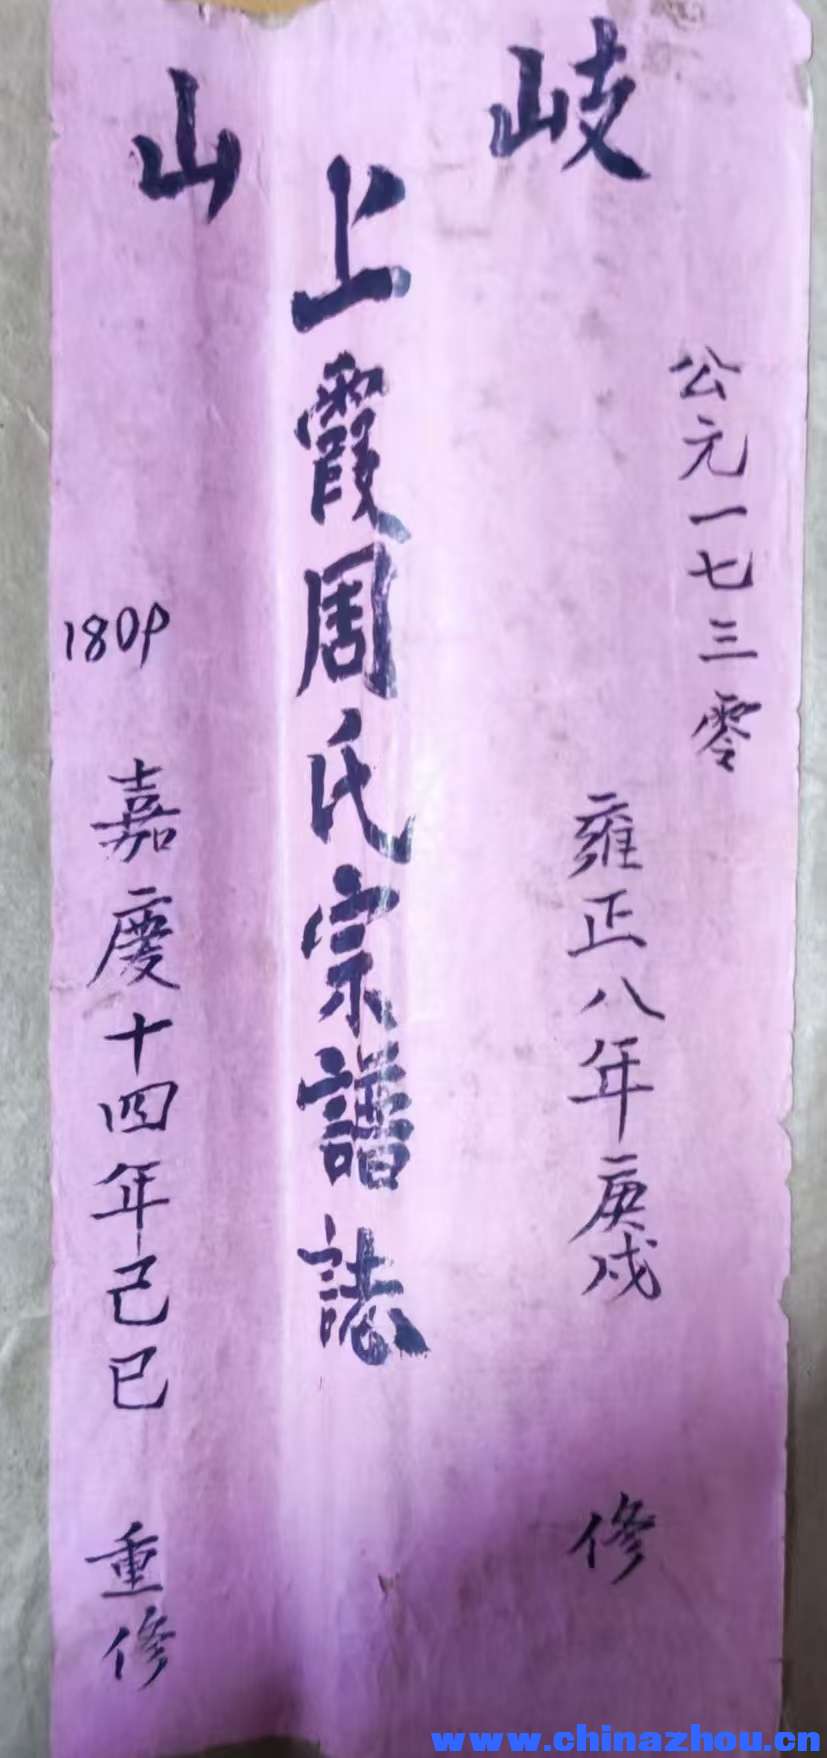 岐山
公元一七三零
雍正八年庚戌 修
上霞周氏宗譜誌
1809
嘉慶十四年己巳 重修
www.chinazhou.cn